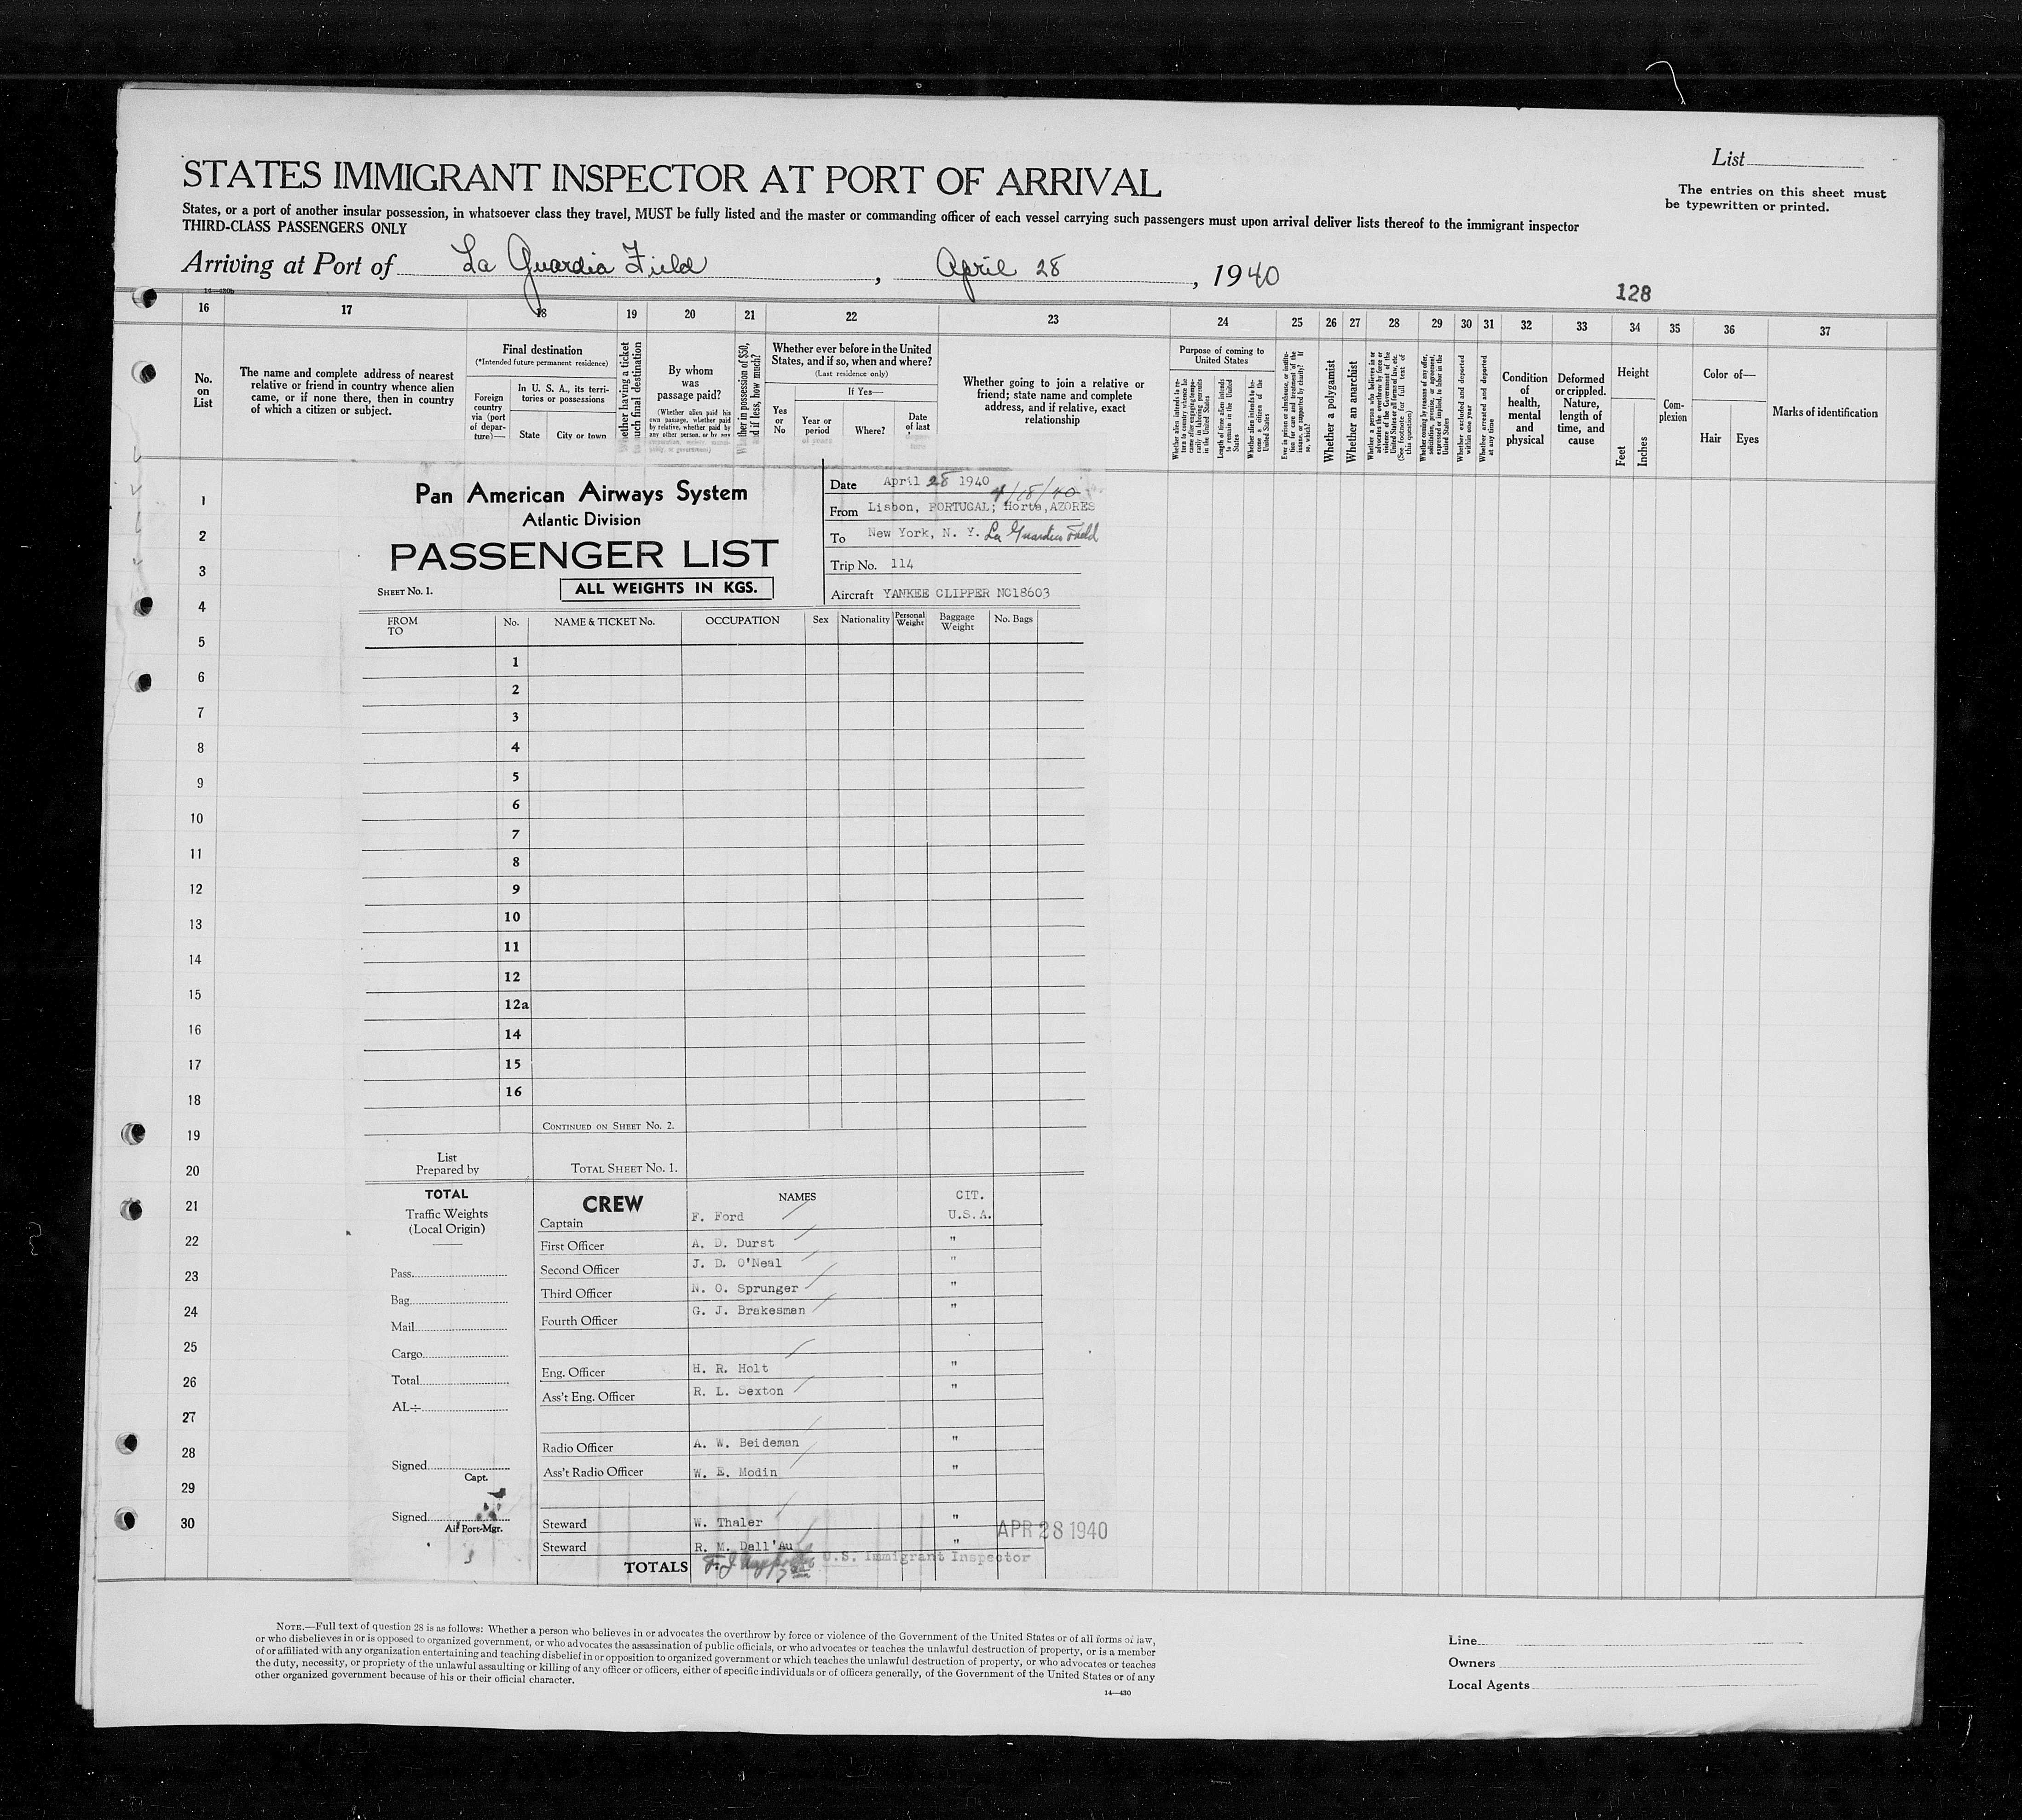 List
The entries on this sheet must
be typewritten or printed.
STATES IMMIGRANT INSPECTOR AT PORT OF ARRIVAL
States, or a port of another insular possession, in whatsoever class they travel, MUST be fully listed and the master or commanding officer of each vessel carrying such passengers must upon arrival deliver lists thereof to the immigrant inspector
THIRD-CLASS PASSENGERS ONLY
Arriving at Port of La Guardia Field, April 28, 1940
14—430b
128
16 17 18 19 20 21 22 23 24 25 26 27 28 29 30 31 32 33 34 35 36 37
No.
on
List
The name and complete address of nearest
relative or friend in country whence alien
came, or if none there, then in country
of which a citizen or subject.
Final destination
(*Intended future permanent residence)
Foreign
country
via (port
of depar-
ture)—
In U. S. A., its terri-
tories or possessions
State City or town
By whom
was
passage paid?
(Whether alien paid his
own passage, whether paid
by relative, whether paid by
any other person, or by any
Whether ever before in the United
States, and if so, when and where?
(Last residence only)
Yes
or
No
If Yes—
Year or
period
of years
Where?
Date
of last
Whether going to join a relative or
friend; state name and complete
address, and if relative, exact
relationship
Purpose of coming to
United States
Whether a polygamist
Whether an anarchist
Whether excluded and deported
within one year
Whether arrested and deported
at any time
Condition
of
health,
mental
and
physical
Deformed
or crippled.
Nature,
length of
time, and
cause
Height
Feet
Inches
Com-
plexion
Color of—
Hair Eyes
Marks of identification
Pan American Airways System
Atlantic Division
PASSENGER LIST
SHEET No. 1.
ALL WEIGHTS IN KGS.
Date April 28 1940
4/28/40
From Lisbon, PORTUGAL; Horta, AZORES
To New York, N. Y. La Guardia Field
Trip No. 114
Aircraft YANKEE CLIPPER NC18603
FROM
TO
No. NAME & TICKET No. OCCUPATION Sex Nationality Personal Weight Baggage Weight No. Bags
1
2
3
4
5
6
7
8
9
10
11
12
12a
14
15
16
CONTINUED ON SHEET No. 2.
List
Prepared by
TOTAL SHEET No. 1.
TOTAL
Traffic Weights
(Local Origin)
Pass.
Bag.
Mail
Cargo
Total
AL÷
Signed
Capt.
Signed
Air Port-Mgr.
CREW NAMES CIT.
Captain F. Ford U.S.A.
First Officer A. D. Durst "
Second Officer J. D. O'Neal "
Third Officer N. O. Sprunger "
Fourth Officer G. J. Brakesman "
Eng. Officer H. R. Holt "
Ass't Eng. Officer R. L. Sexton "
Radio Officer A. W. Beideman "
Ass't Radio Officer W. E. Modin "
Steward W. Thaler "
Steward R. M. Dall'Au "
APR 28 1940
TOTALS
U.S. Immigrant Inspector
1
2
3
4
5
6
7
8
9
10
11
12
13
14
15
16
17
18
19
20
21
22
23
24
25
26
27
28
29
30
NOTE.—Full text of question 28 is as follows: Whether a person who believes in or advocates the overthrow by force or violence of the Government of the United States or of all forms of law,
or who disbelieves in or is opposed to organized government, or who advocates the assassination of public officials, or who advocates or teaches the unlawful destruction of property, or is a member
of or affiliated with any organization entertaining and teaching disbelief in or opposition to organized government or which teaches the unlawful destruction of property, or who advocates or teaches
the duty, necessity, or propriety of the unlawful assaulting or killing of any officer or officers, either of specific individuals or of officers generally, of the Government of the United States or of any
other organized government because of his or their official character.
14—430
Line
Owners
Local Agents